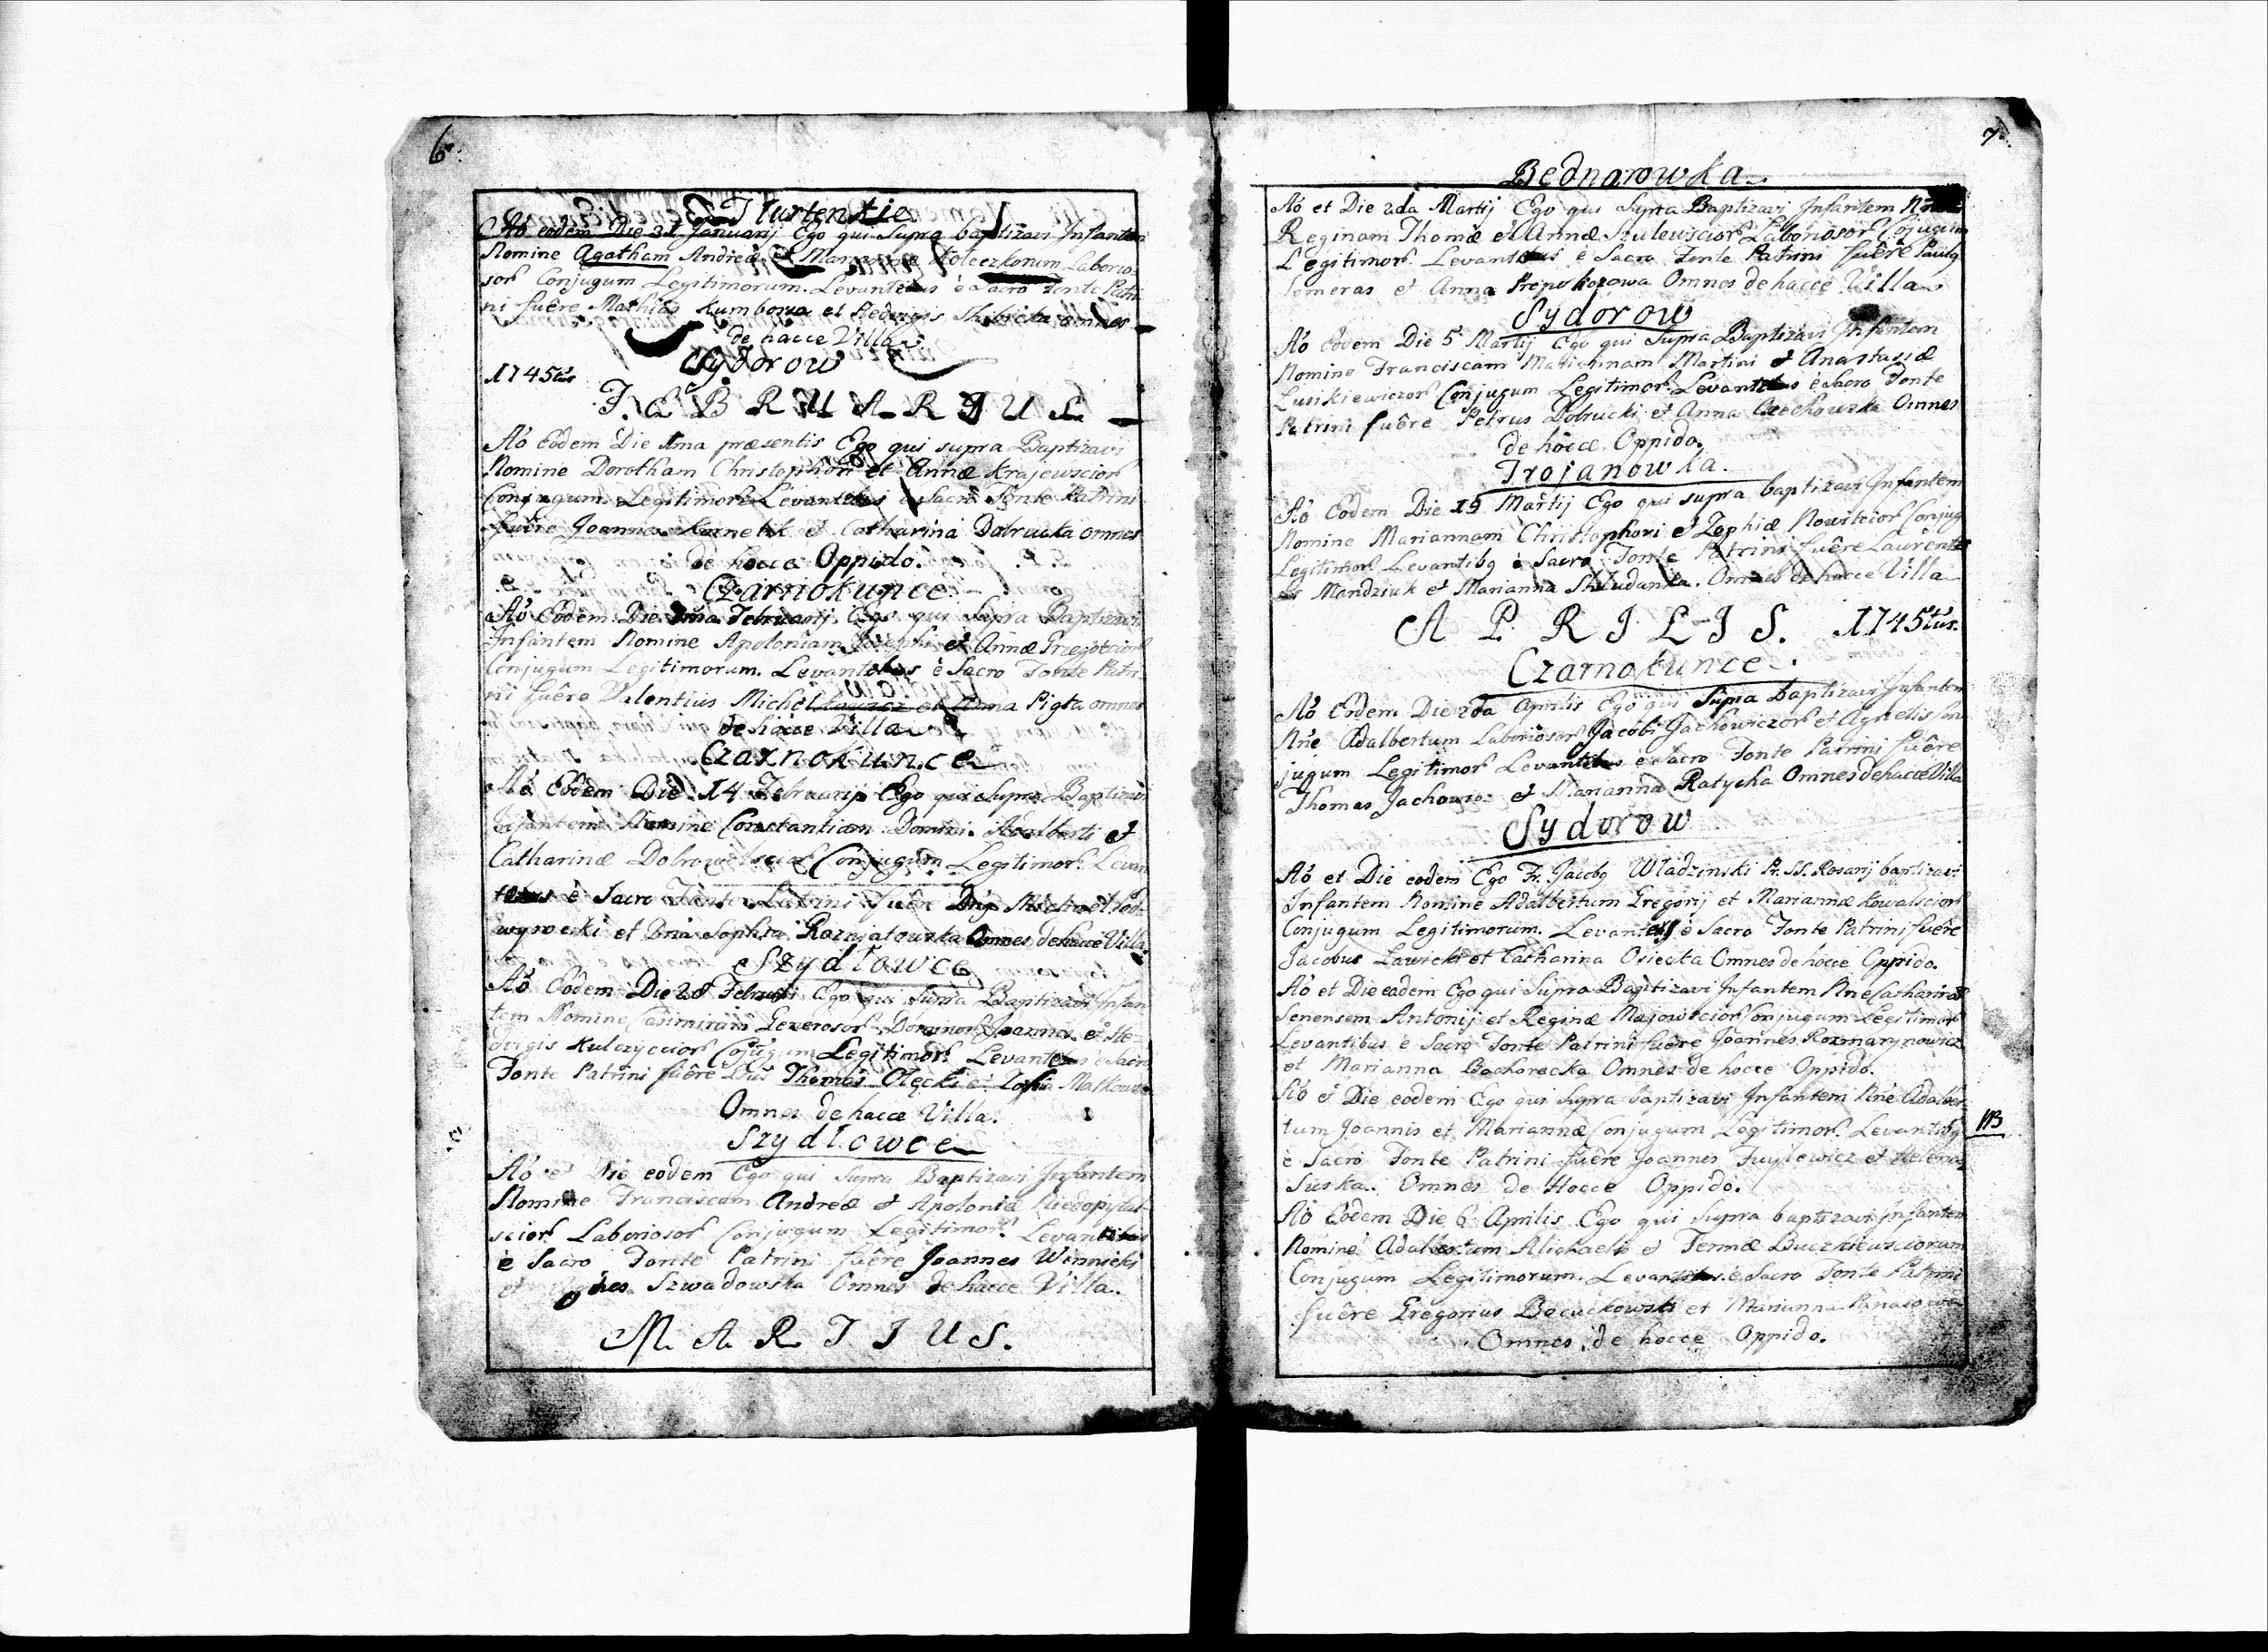 6.
Tlustenkie
Aō eodem Die 31 Januarij Ego qui Supra baptizavi Infantem
Nomine Agatham Andreæ et Mariannæ Laborio-
sor Conjugum Legitimorum. Levantibus è Sacro Fonte Patri-
ni fuêre Mathias Kumbowa et Hedvigis omnes
de hacce Villa.
Sydorow
1745tus
FEBRUARIUS
Aō Eodem Die 1ma præsentis Ego qui supra Baptizavi
Nomine Dorotham Christophori et Annæ Krajewscior
Conjugum Legitimor Levantibus è Sacro Fonte Patrini
fuêre Joannes Kurnetik et Catharina Dobrucka omnes
de hocce Oppido.
Czarnokunce
Aō Eodem Die Februarij Ego qui Supra Baptizavi
Infantem Nomine Apoloniam Josephi et Annæ
Conjugum Legitimorum. Levantibus è Sacro Fonte Patri-
ni fuêre Valentius et Anna Pigta omnes
de hacce Villa
Czarnokunce
Aō Eodem Die 14 Februarij Ego qui Supra Baptizavi
Infantem Nomine Constantiam Domini Adalberti et
Catharinæ Conjugum Legitimor. Levan-
tibus è Sacro Fonte Patrini fuêre Dnj Michael Pod-
wysocki et Dna Sophia Rozniatowska Omnes de hacce Villa
Szydlowce
Aō Eodem Die 28 Februarij Ego qui Supra Baptizavi Infan-
tem Nomine Casimirum Generosor Dominor Joannis et He-
dvigis Kulczyccior Cojugum Legitimor. Levantibus è Sacro
Fonte Patrini fuêre Dnus Thomas Olęcki et Zofia
Omnes de hacce Villa.
Szydlowce
Aō et Die eodem Ego qui Supra Baptizavi Infantem
Nomine Franciscam Andreæ et Apoloniæ
scior Laboriosor Conjugum Legitimor. Levantibus
è Sacro Fonte Patrini fuêre Joannes Winnicki
et Agnes Szwadowska Omnes de hacce Villa.
MARTIUS.
7.
Bednarowka
Aō et Die 2da Martij Ego qui Supra Baptizavi Infantem
Reginam Thomæ et Annæ Szulewscior Laboriosor Cojugum
Legitimor. Levantibus è Sacro Fonte Patrini fuêre Paulg
Semeras et Anna Omnes de hacce Villa
Sydorow
Aō Eodem Die 5 Martij Ego qui Supra Baptizavi Infantem
Nomine Franciscam Martini et Anastasiæ
Lusikiewiczor Conjugum Legitimor. Levantibus è Sacro Fonte
Patrini fuêre Petrus Dobrucki et Anna Orzechowska Omnes
de hocce Oppido.
Trojanowka.
Aō Eodem Die 19 Martij Ego qui supra baptizavi Infantem
Nomine Mariannam Christophori et Zophiæ Nowitcior Conjug
Legitimor Levantibg è Sacro Fonte Patrini fuêre Laurenti-
Mandziuk et Marianna Omnes de hacce Villa
APRILIS. 1745tus.
Czarnokunce
Aō Eodem Die 2da Aprilis Ego qui Supra baptizavi Infantem
Nne Adalbertum Laboriosor Jacobi Jachowiczor et Agnetis Con-
jugum Legitimor Levantibus è Sacro Fonte Patrini fuêre
Thomas Jachowic: et Marianna Ratycha Omnes de hacce Villa
Sydorow
Aō et Die eodem Ego Fr. Jacobg Wladzinski Pr. SS. Rosarij baptizavi
Infantem Nomine Adalbertum Gregorij et Mariannæ Kowalscior
Conjugum Legitimorum. Levantibg è Sacro Fonte Patrini fuêre
Jacobus Lawicki et Catharina Osiecka Omnes de hocce Oppido.
Aō et Die eadem Ego qui Supra Baptizavi Infantem Nne Catharinā
Senensem Antonij et Reginæ Majowscior Conjugum Legitimor
Levantibus è Sacro Fonte Patrini fuêre Joannes Rozmarynowicz
et Marianna Bachorecka Omnes de hocce Oppido.
Aō et Die eodem Ego qui Supra baptizavi Infantem Nne Adalber-
tum Joannis et Mariannæ Conjugum Legitimor. Levantibg
NB
è Sacro Fonte Patrini fuêre Joannes et Helena
Suska. Omnes de Hocce Oppido.
Aō Eodem Die 6 Aprilis Ego qui supra baptizavi Infantem
Nomine Adalbertum Michaelis et Buczkiewsciorum
Conjugum Legitimorum. Levantibus è Sacro Fonte Patrini
fuêre Gregorius et Marianna
Omnes de hocce Oppido.